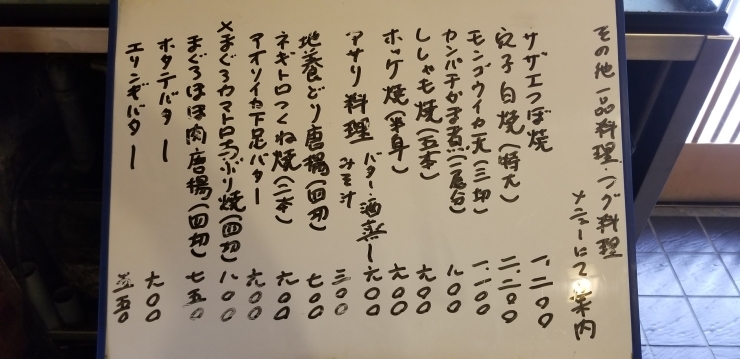 その他一品料理・フグ料理
メニューにてご案内
サザエつぼ焼 一、二〇〇
穴子白焼(特大) 二、二〇〇
モンゴウイカ天(三切) 一、一〇〇
カンパチかま煮(二尾台) 八〇〇
ししゃも焼(五本) 六〇〇
ホッケ焼(半身) 六〇〇
アサリ料理 バター・酒蒸し 六〇〇
みそ汁 三〇〇
地養どり唐揚(四切) 七〇〇
ネギトロつくね焼(二本) 六〇〇
アオリイカ下足バター 六〇〇
×まぐろカマトロあぶり焼(四切) 八〇〇
まぐろほほ肉唐揚(四切) 七五〇
ホタテバター 六〇〇
エリンギバター 五五〇